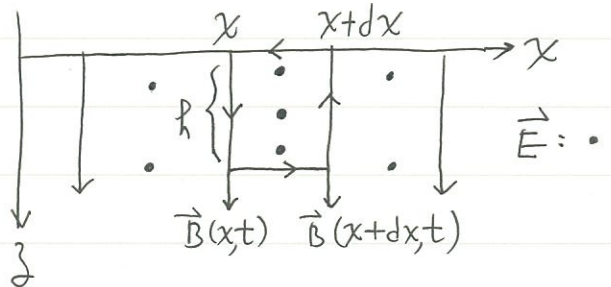 x x+dx
x
h
E⃗ : •
B⃗(x,t) B⃗(x+dx,t)
z